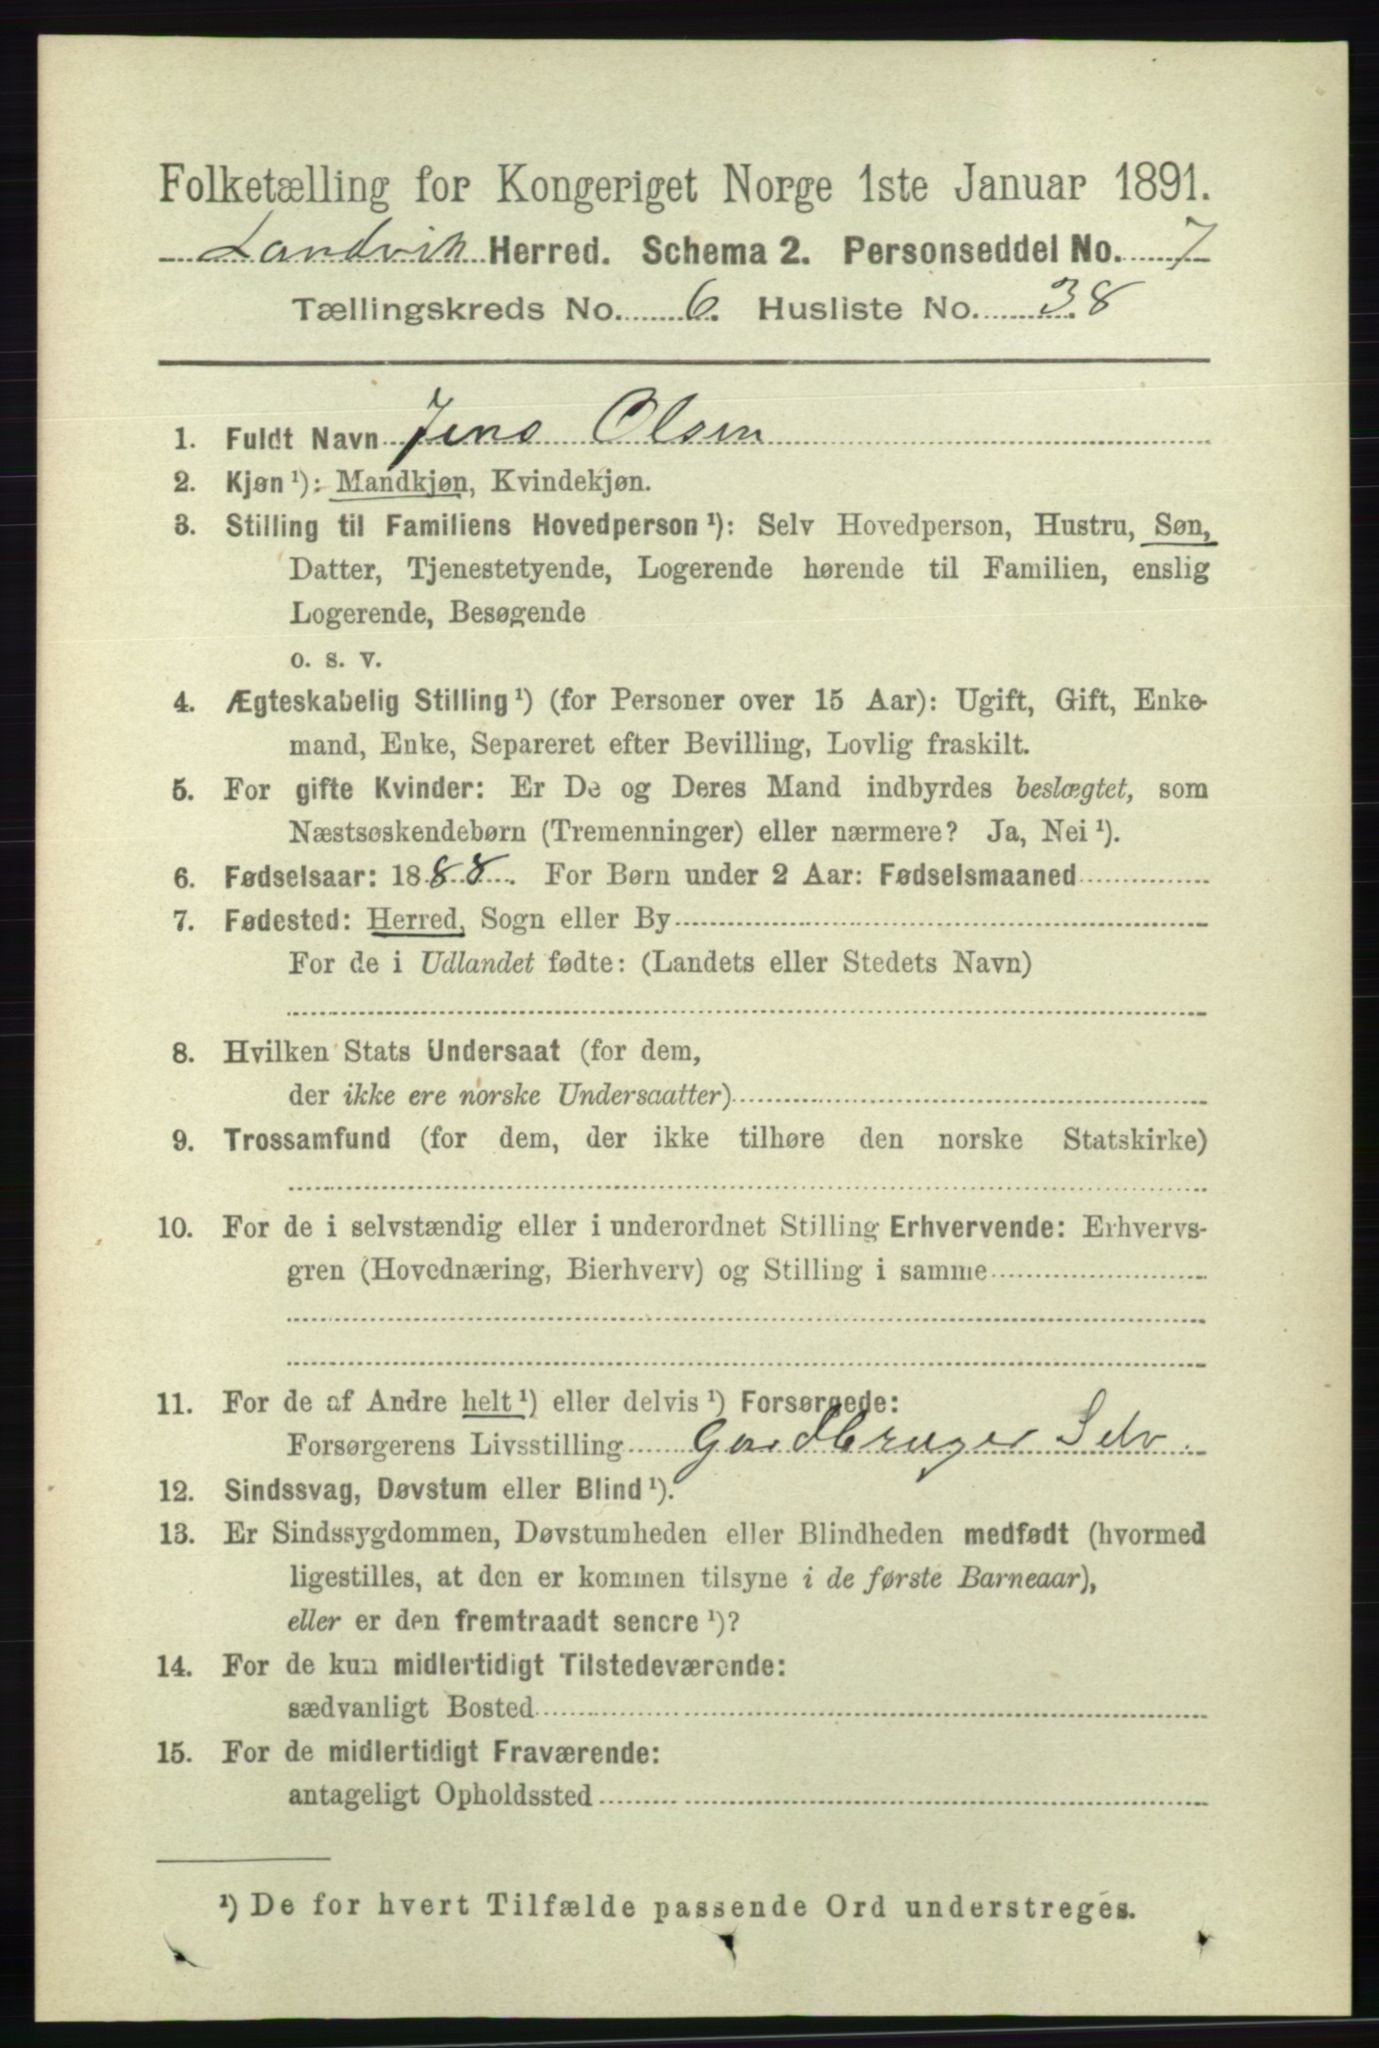 Folketælling for Kongeriget Norge 1ste Januar 1891.
Landvik Herred. Schema 2. Personseddel No. 7
Tællingskreds No. 6. Husliste No. 38
1. Fuldt Navn Jens Olsen
2. Kjøn ¹): Mandkjøn, Kvindekjøn.
3. Stilling til Familiens Hovedperson ¹): Selv Hovedperson, Hustru, Søn,
Datter, Tjenestetyende, Logerende hørende til Familien, enslig
Logerende, Besøgende
o. s. v.
4. Ægteskabelig Stilling ¹) (for Personer over 15 Aar): Ugift, Gift, Enke-
mand, Enke, Separeret efter Bevilling, Lovlig fraskilt.
5. For gifte Kvinder: Er De og Deres Mand indbyrdes beslægtet, som
Næstsøskendebørn (Tremenninger) eller nærmere? Ja, Nei ¹).
6. Fødselsaar: 1888. For Børn under 2 Aar: Fødselsmaaned
7. Fødested: Herred, Sogn eller By
For de i Udlandet fødte: (Landets eller Stedets Navn)
8. Hvilken Stats Undersaat (for dem,
der ikke ere norske Undersaatter)
9. Trossamfund (for dem, der ikke tilhøre den norske Statskirke)
10. For de i selvstændig eller i underordnet Stilling Erhvervende: Erhvervs-
gren (Hovednæring, Bierhverv) og Stilling i samme
11. For de af Andre helt ¹) eller delvis ¹) Forsørgede:
Forsørgerens Livsstilling Gardbruger Selv.
12. Sindssvag, Døvstum eller Blind ¹).
13. Er Sindssygdommen, Døvstumheden eller Blindheden medfødt (hvormed
ligestilles, at den er kommen tilsyne i de første Barneaar),
eller er den fremtraadt senere ¹)?
14. For de kun midlertidigt Tilstedeværende:
sædvanligt Bosted
15. For de midlertidigt Fraværende:
antageligt Opholdssted
¹) De for hvert Tilfælde passende Ord understreges.